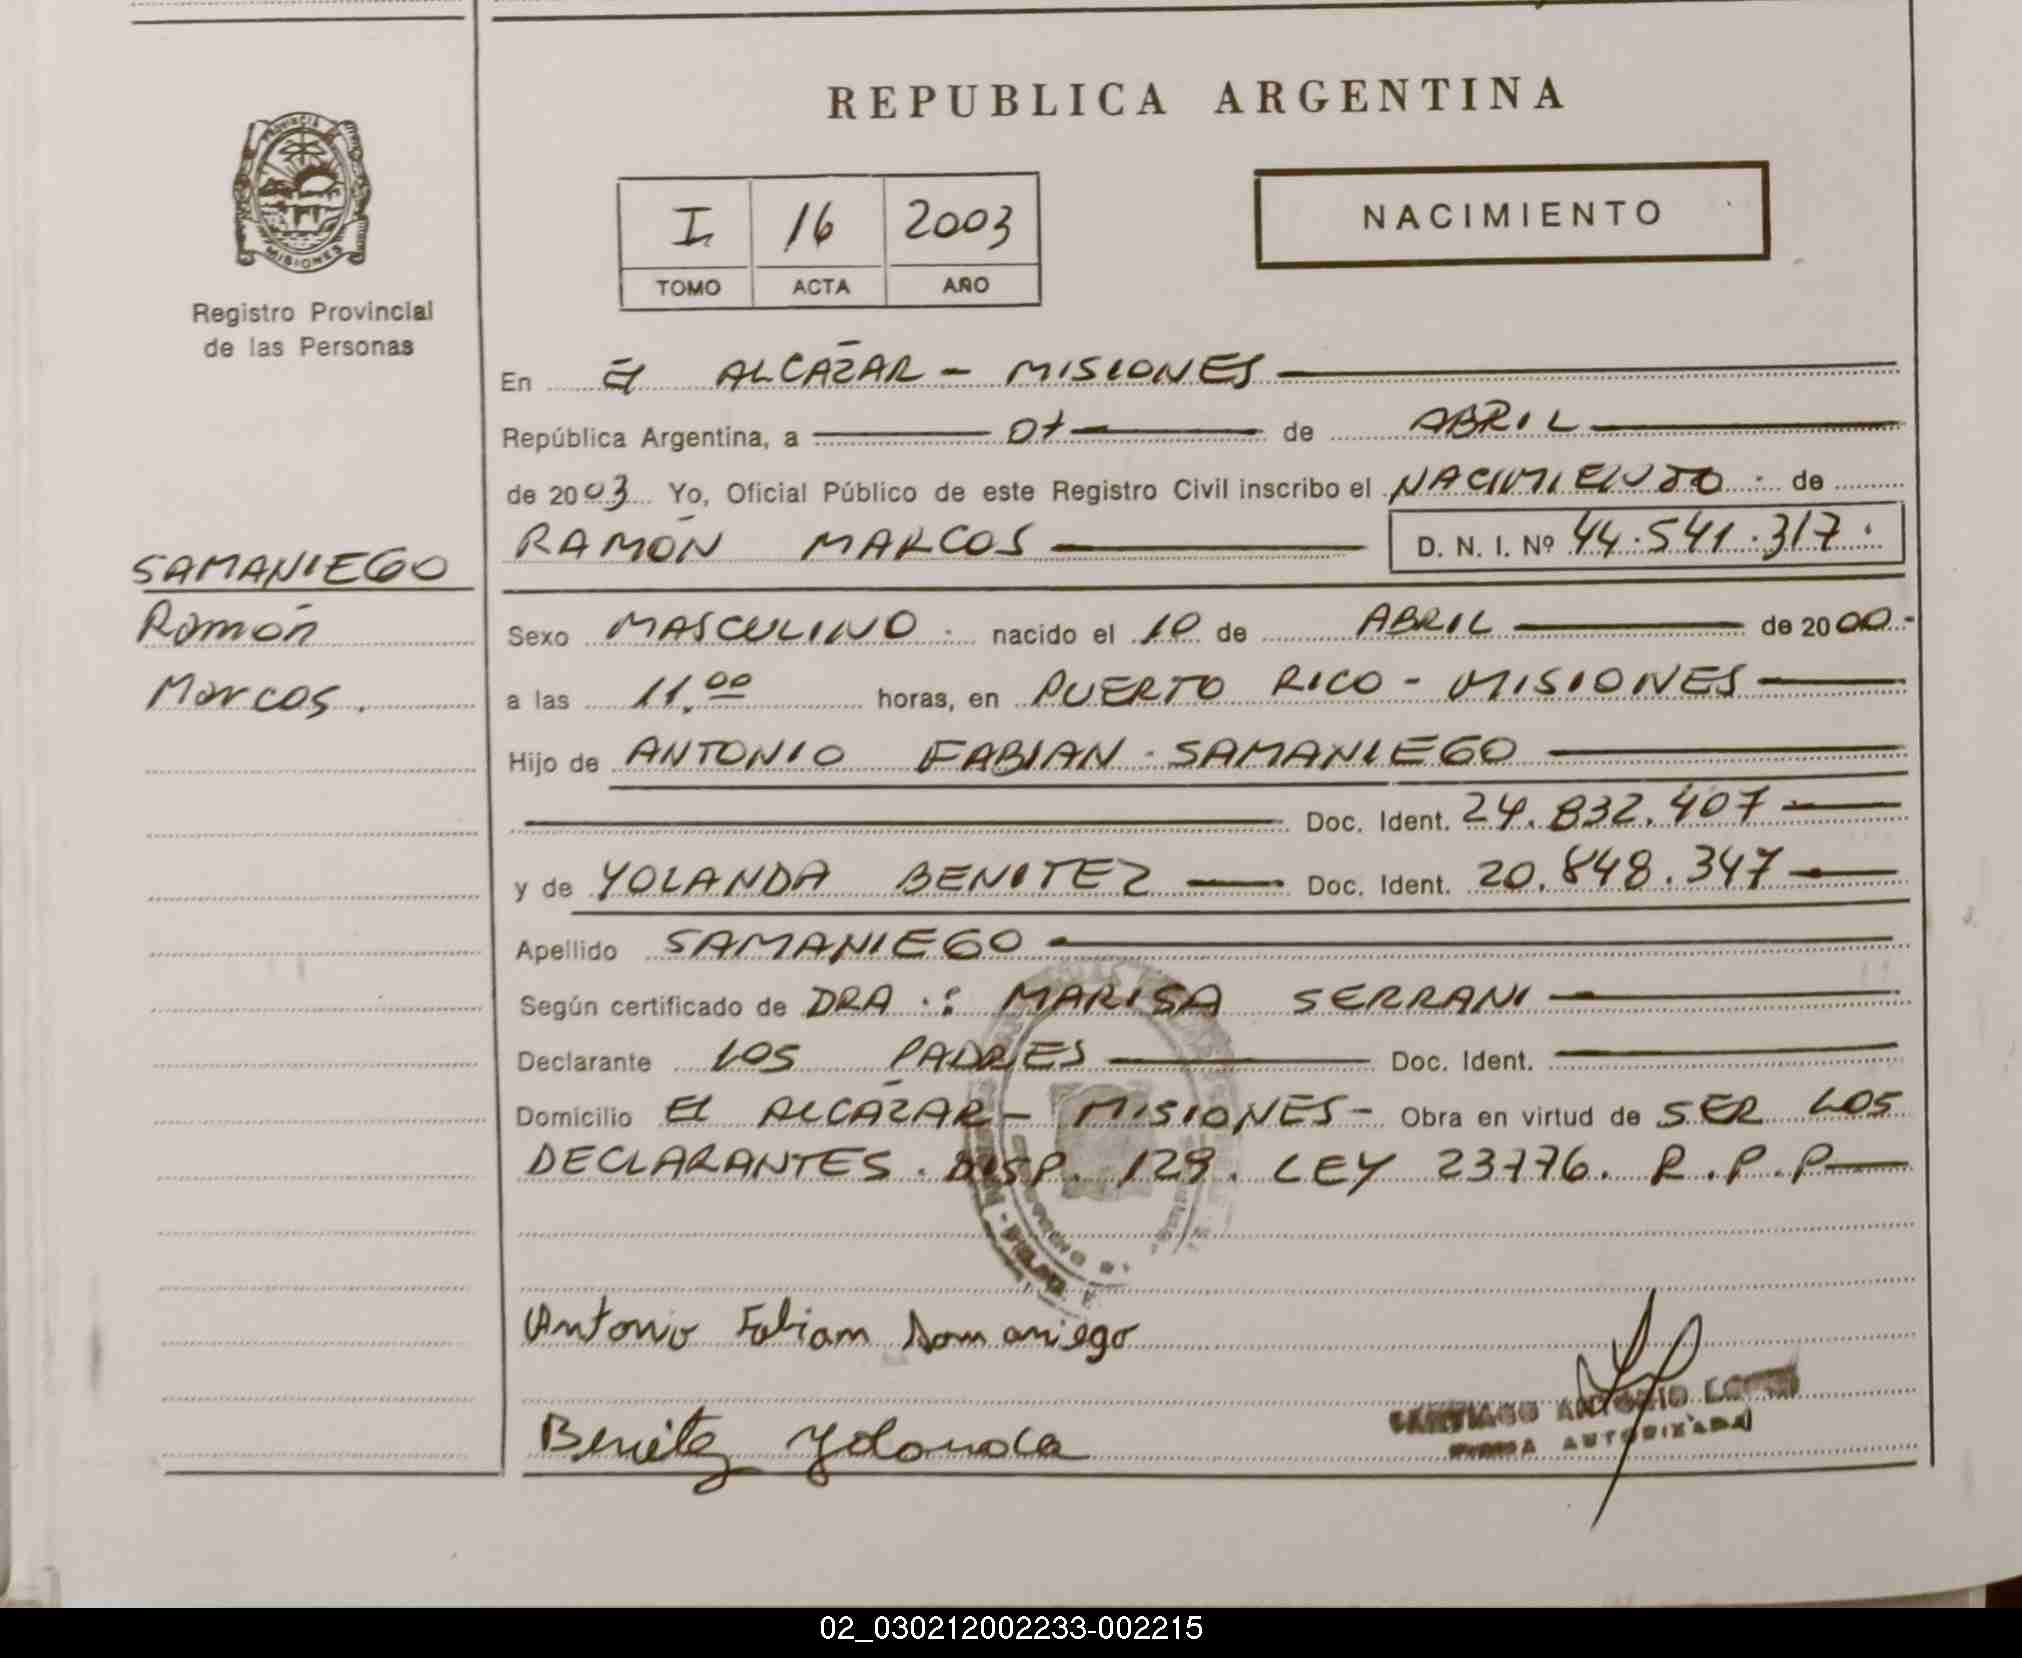 REPUBLICA ARGENTINA
PROVINCIA
MISIONES
Registro Provincial
de las Personas
I 16 2003
TOMO ACTA AÑO
NACIMIENTO
SAMANIEGO
Ramón
Marcos.
En El ALCAZAR - MISIONES
República Argentina, a 07 de ABRIL
de 2003 Yo, Oficial Público de este Registro Civil inscribo el NACIMIENTO. de
RAMÓN MARCOS D. N. I. Nº 44.541.317.
Sexo MASCULINO. nacido el 10 de ABRIL de 2000.-
a las 11.00 horas, en PUERTO RICO - MISIONES
Hijo de ANTONIO FABIAN SAMANIEGO
Doc. Ident. 24.832.407
y de YOLANDA BENITEZ Doc. Ident. 20.848.347
Apellido SAMANIEGO
Según certificado de DRA.: MARISA SERRANI
Declarante LOS PADRES Doc. Ident.
Domicilio El ALCAZAR - MISIONES - Obra en virtud de SER LOS
DECLARANTES. DISP. 129. LEY 23776. R.P.P
Antonio Fabiam Samaniego
Benitez Yolanda
SANTIAGO ANTONIO
FIRMA AUTORIZADA
02_030212002233-002215